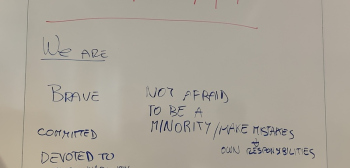 WE ARE
BRAVE NOT AFRAID
TO BE A
MINORITY/MAKE MISTAKES
COMMITTED
OWN RESPONSIBILITIES
DEVOTED TO